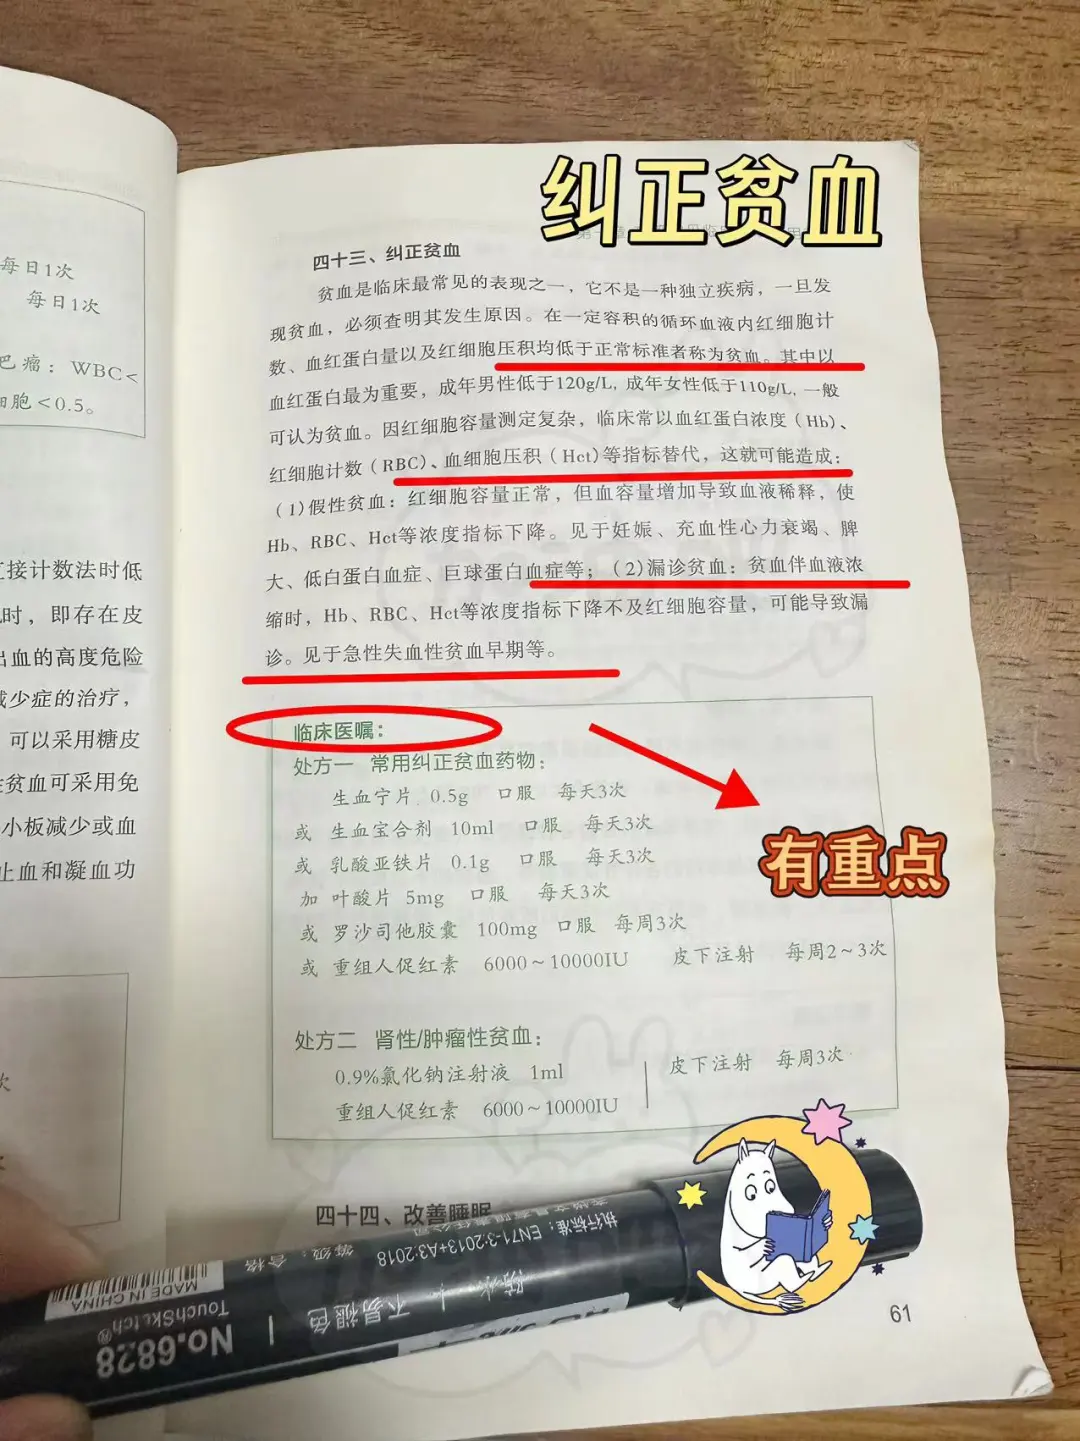 纠正贫血
每日1次
每日1次
巴瘤：WBC<
细胞<0.5。
直接计数法时低
时，即存在皮
出血的高度危险
减少症的治疗，
可以采用糖皮
性贫血可采用免
小板减少或血
止血和凝血功
四十三、纠正贫血
贫血是临床最常见的表现之一，它不是一种独立疾病，一旦发
现贫血，必须查明其发生原因。在一定容积的循环血液内红细胞计
数、血红蛋白量以及红细胞压积均低于正常标准者称为贫血。其中以
血红蛋白最为重要，成年男性低于120g/L，成年女性低于110g/L，一般
可认为贫血。因红细胞容量测定复杂，临床常以血红蛋白浓度（Hb）、
红细胞计数（RBC）、血细胞压积（Hct）等指标替代，这就可能造成：
（1）假性贫血：红细胞容量正常，但血容量增加导致血液稀释，使
Hb、RBC、Hct等浓度指标下降。见于妊娠、充血性心力衰竭、脾
大、低白蛋白血症、巨球蛋白血症等；（2）漏诊贫血：贫血伴血液浓
缩时，Hb、RBC、Hct等浓度指标下降不及红细胞容量，可能导致漏
诊。见于急性失血性贫血早期等。
临床医嘱：
处方一 常用纠正贫血药物：
生血宁片 0.5g 口服 每天3次
或 生血宝合剂 10ml 口服 每天3次
或 乳酸亚铁片 0.1g 口服 每天3次
加 叶酸片 5mg 口服 每天3次
或 罗沙司他胶囊 100mg 口服 每周3次
或 重组人促红素 6000～10000IU 皮下注射 每周2～3次
有重点
处方二 肾性/肿瘤性贫血：
0.9%氯化钠注射液 1ml
重组人促红素 6000～10000IU
皮下注射 每周3次
四十四、改善睡眠
执行标准：EN71-3:2013+A3:2018
等级：合格
不易褪色
MADE IN CHINA
TouchSketch®
No.6828
61